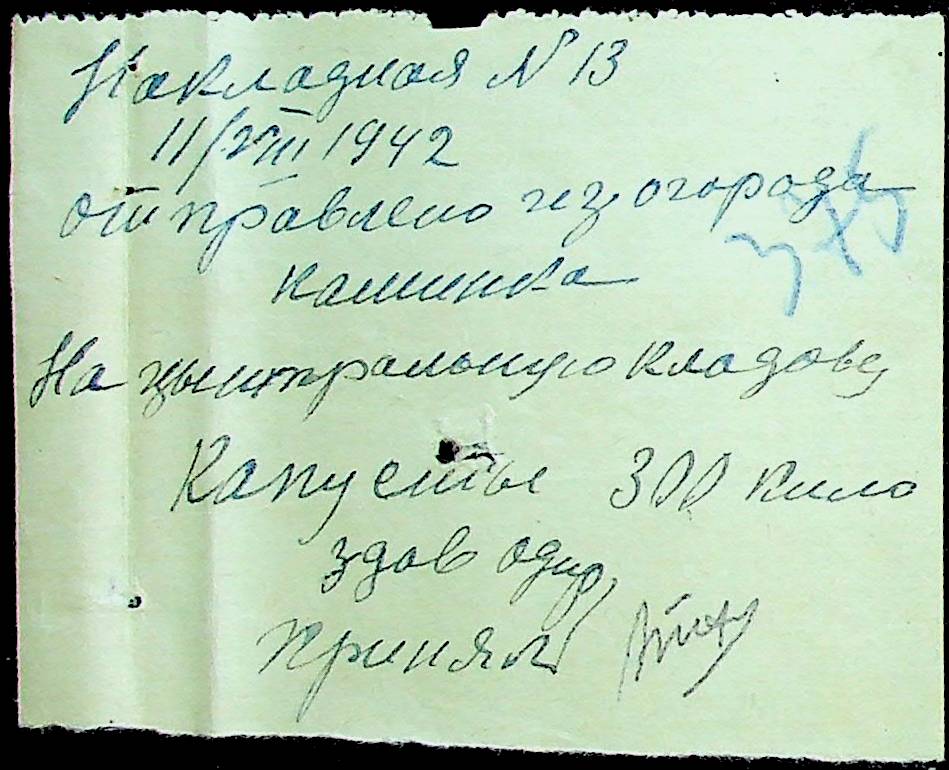 Накладная N 13
11/VIII 1942
отправлено из огорода
каминка
На цынтральную кладову
Капусты 300 кило
здав
Приняв